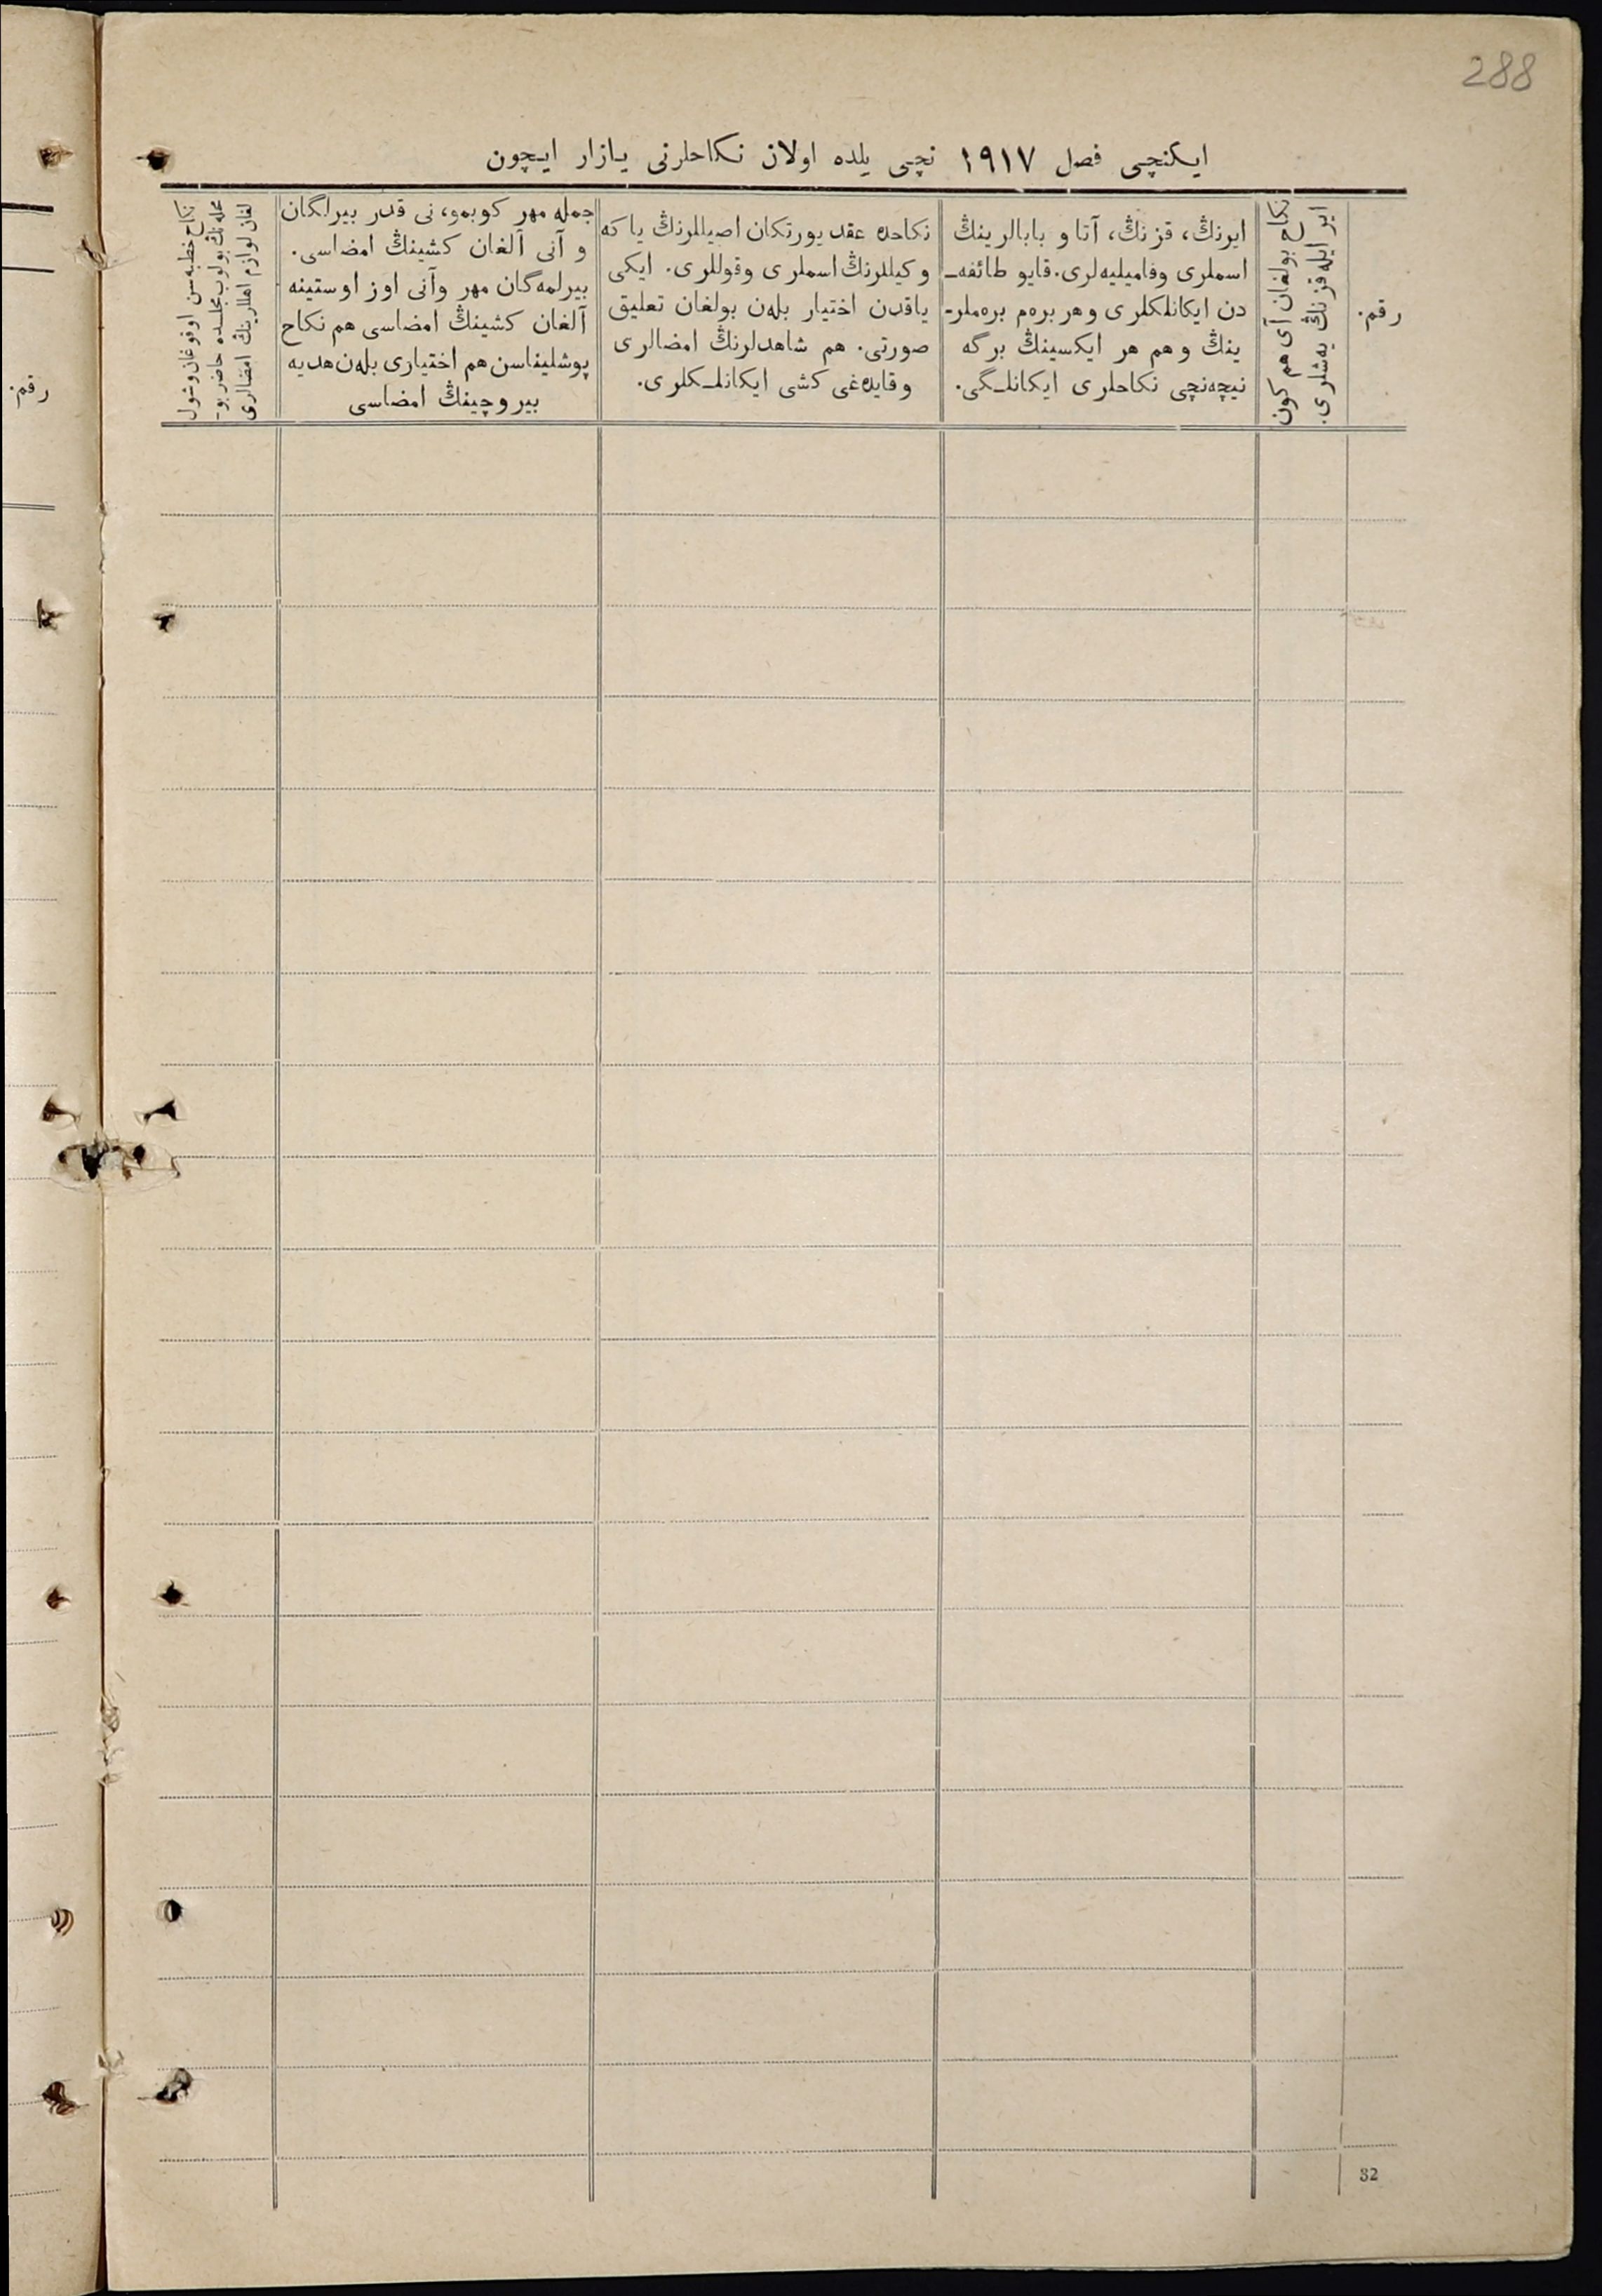 288
ایکنچی فصل ۱۹۱۷ نچی یلده اولان نکاحلرنی یازار ایچون
رقم.
ایر ایله قزنڭ یه‌شلری.
نکاح بولغان آی هم کون
ایرنڭ، قزنڭ، آتا و بابالرینڭ
اسملری وفامیلیه‌لری. قایو طائفه‌ـ
دن ایکانلکلری و هر بره‌م بره‌ملرـ
ینڭ و هم هر ایکسینڭ برگه
نیچه‌نچی نکاحلری ایکانلـگی.
نکاحده عقد یورتکان اصیللرنڭ یا که
وکیللرنڭ اسملری وقوللری. ایکی
یاقدن اختیار بله‌ن بولغان تعلیق
صورتی. هم شاهدلرنڭ امضالری
وقایده‌غی کشی ایکانلـکلری.
جمله مهر کوبمو، نی قدر بیرلگان
و آنی آلغان کشینڭ امضاسی.
بیرلمه‌گان مهر وآنی اوز اوستینه
آلغان کشینڭ امضاسی هم نکاح
پوشلیناسن هم اختیاری بله‌ن هدیه
بیروچینڭ امضاسی
نکاح خطبه‌سن اوقوغان وشول
محله‌نڭ بولوب مجلسده حاضر بوـ
لغان لوازم اهللرینڭ امضالری
رقم.
32